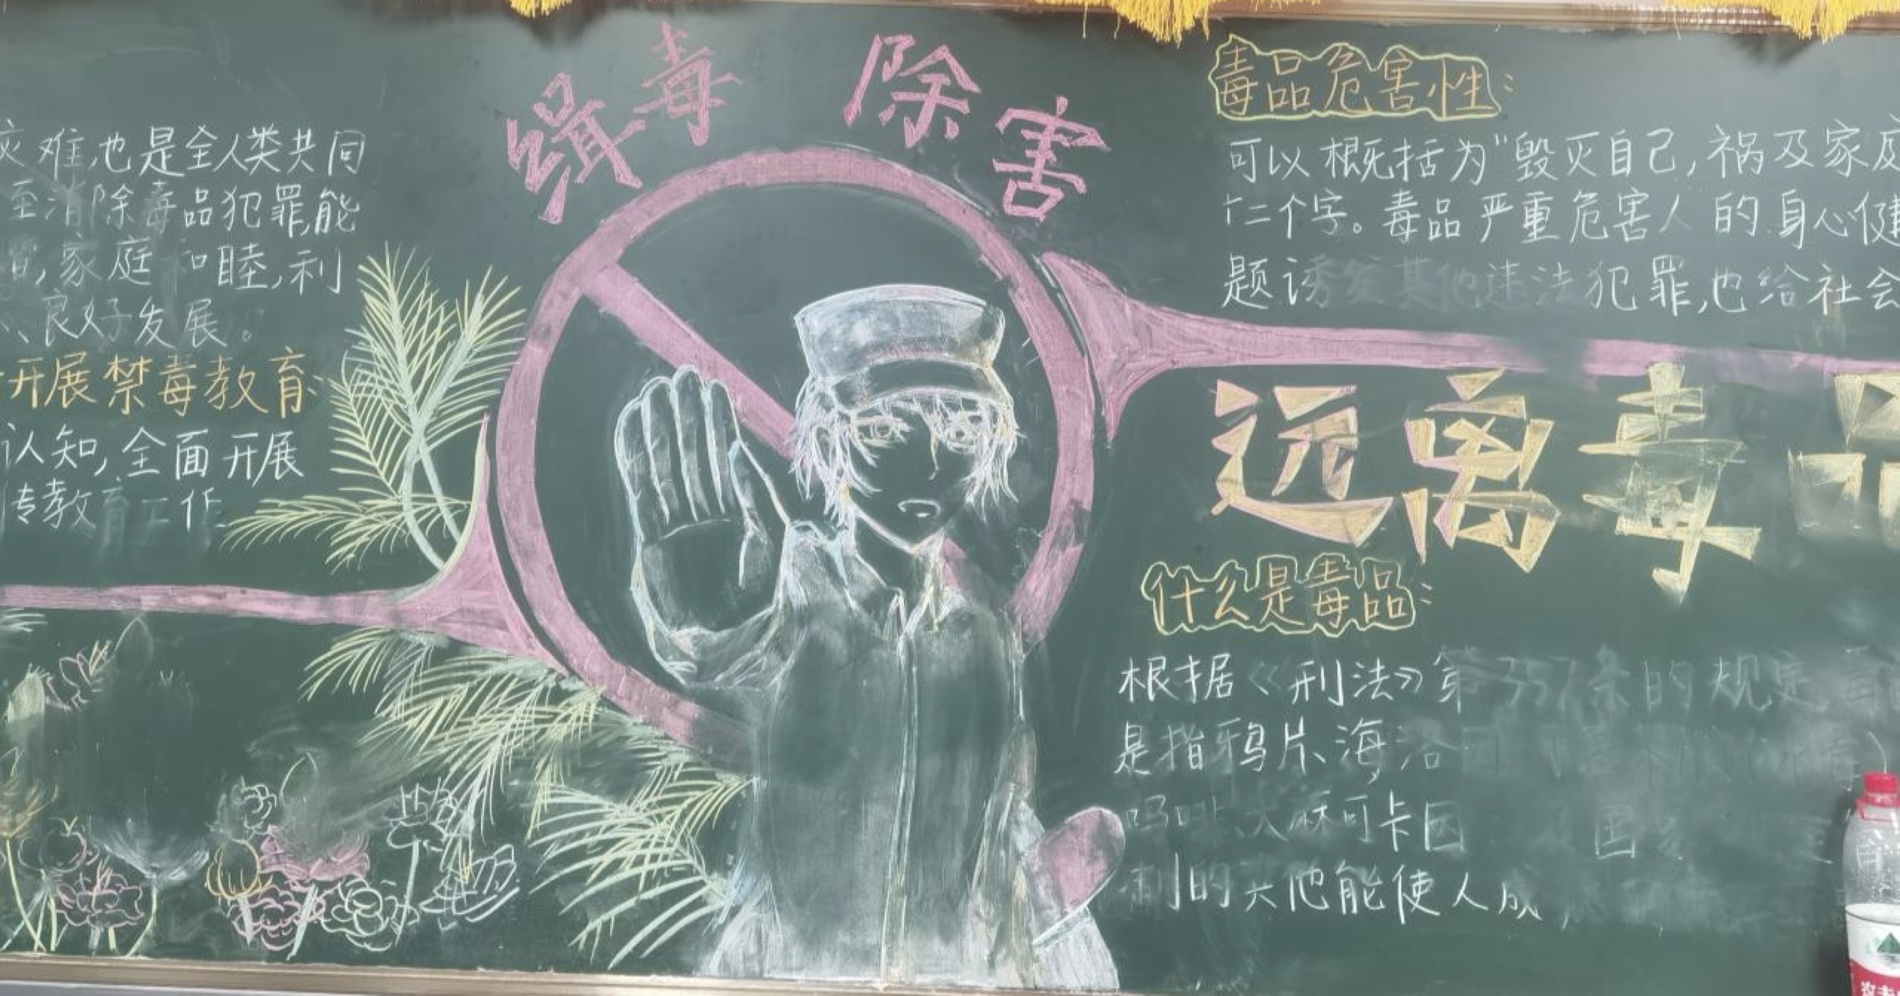 缉毒 除害
灾难,也是全人类共同
至消除毒品犯罪,能
,家庭和睦,利
、良好发展。
开展禁毒教育
认知,全面开展
传教育工作
毒品危害性:
可以概括为"毁灭自己,祸及家庭
十二个字。毒品严重危害人的身心健
题诱发其他违法犯罪,也给社会
远离毒
什么是毒品:
根据《刑法》第357条的规定
是指鸦片、海洛
吗啡、大麻可卡因 国
制的其他能使人成